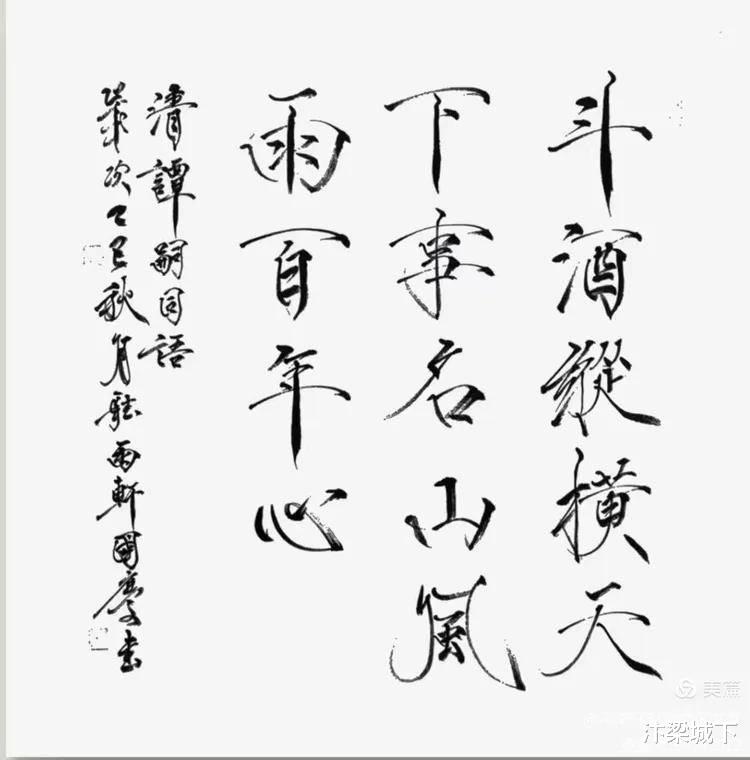 斗酒縱橫天
下事名山風
雨百年心
清譚嗣同語
歲次乙巳秋月聽雨軒國慶書
美篇
汴梁城下